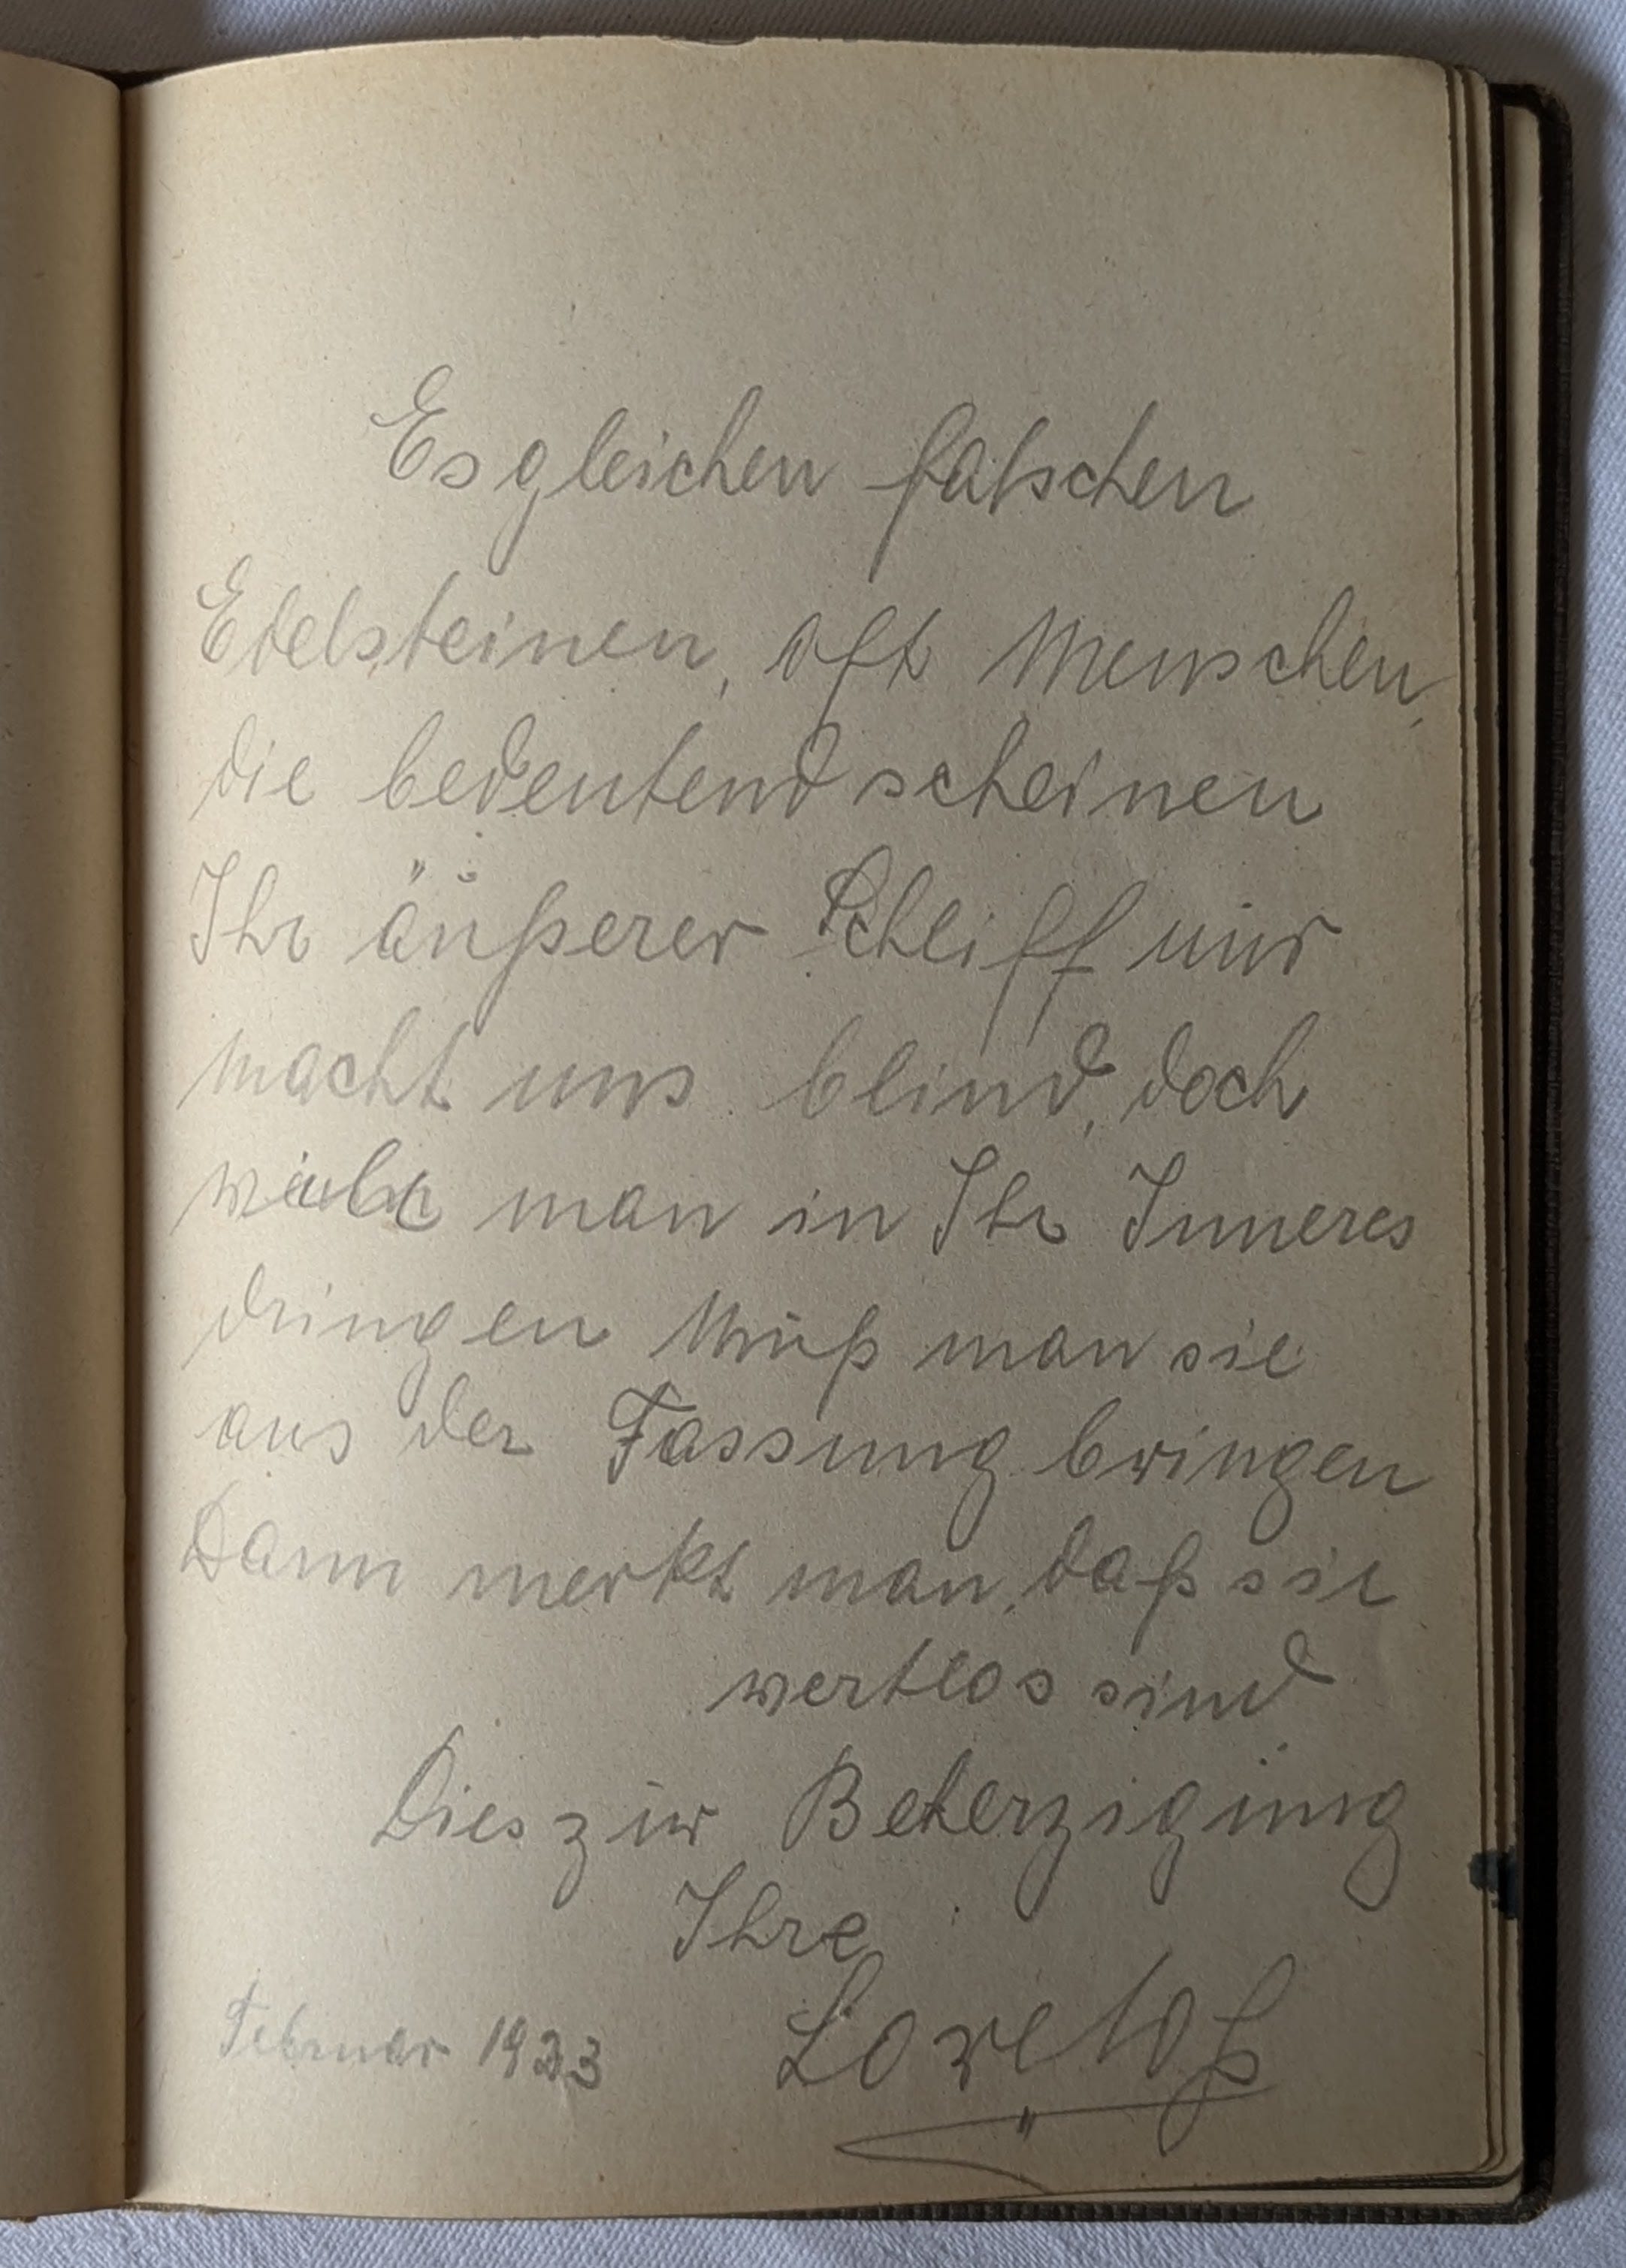 Es gleichen falschen
Edelsteinen, oft Menschen,
die bedeutend scheinen
Ihr äußerer Schliff nur
macht uns blind, doch
man in Ihr Inneres
dringen Muß man sie
aus der Fassung bringen
Dann merkt man, daß sie
wertlos sind
Dies zur Beherzigung
Ihre
Februar 1933